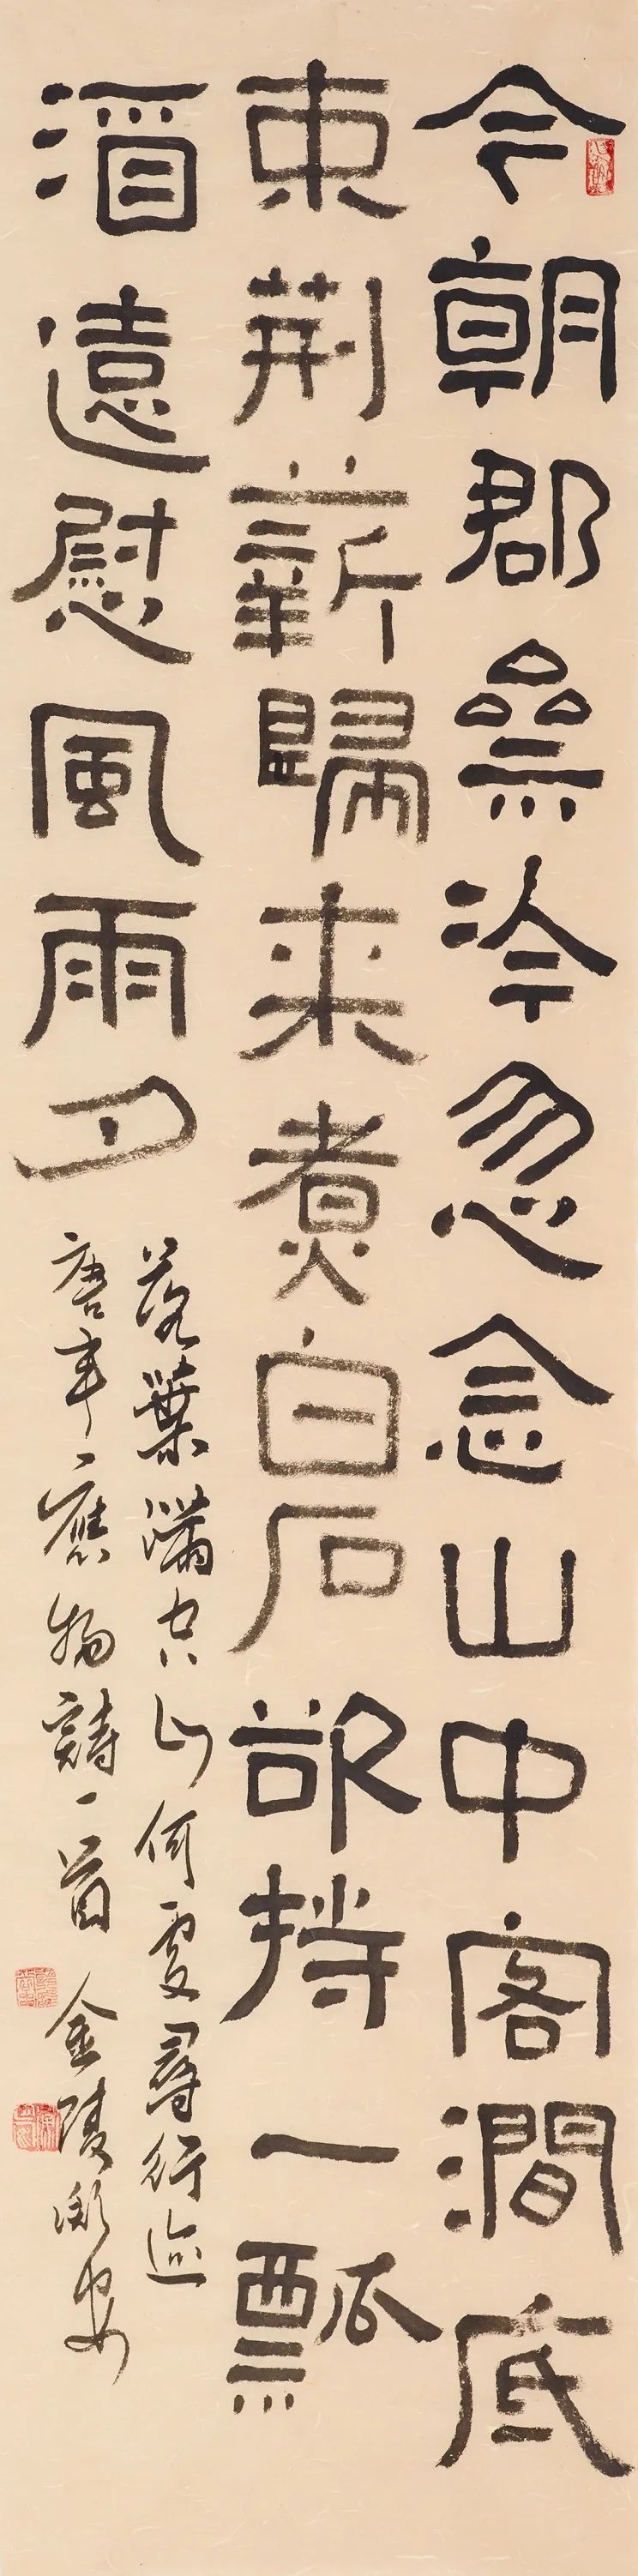 今朝郡齋冷忽念山中客澗底
束荆薪歸来煮白石欲持一瓢
酒遠慰風雨夕
落葉滿空山何處尋行迹
唐韦應物詩一首 金陵